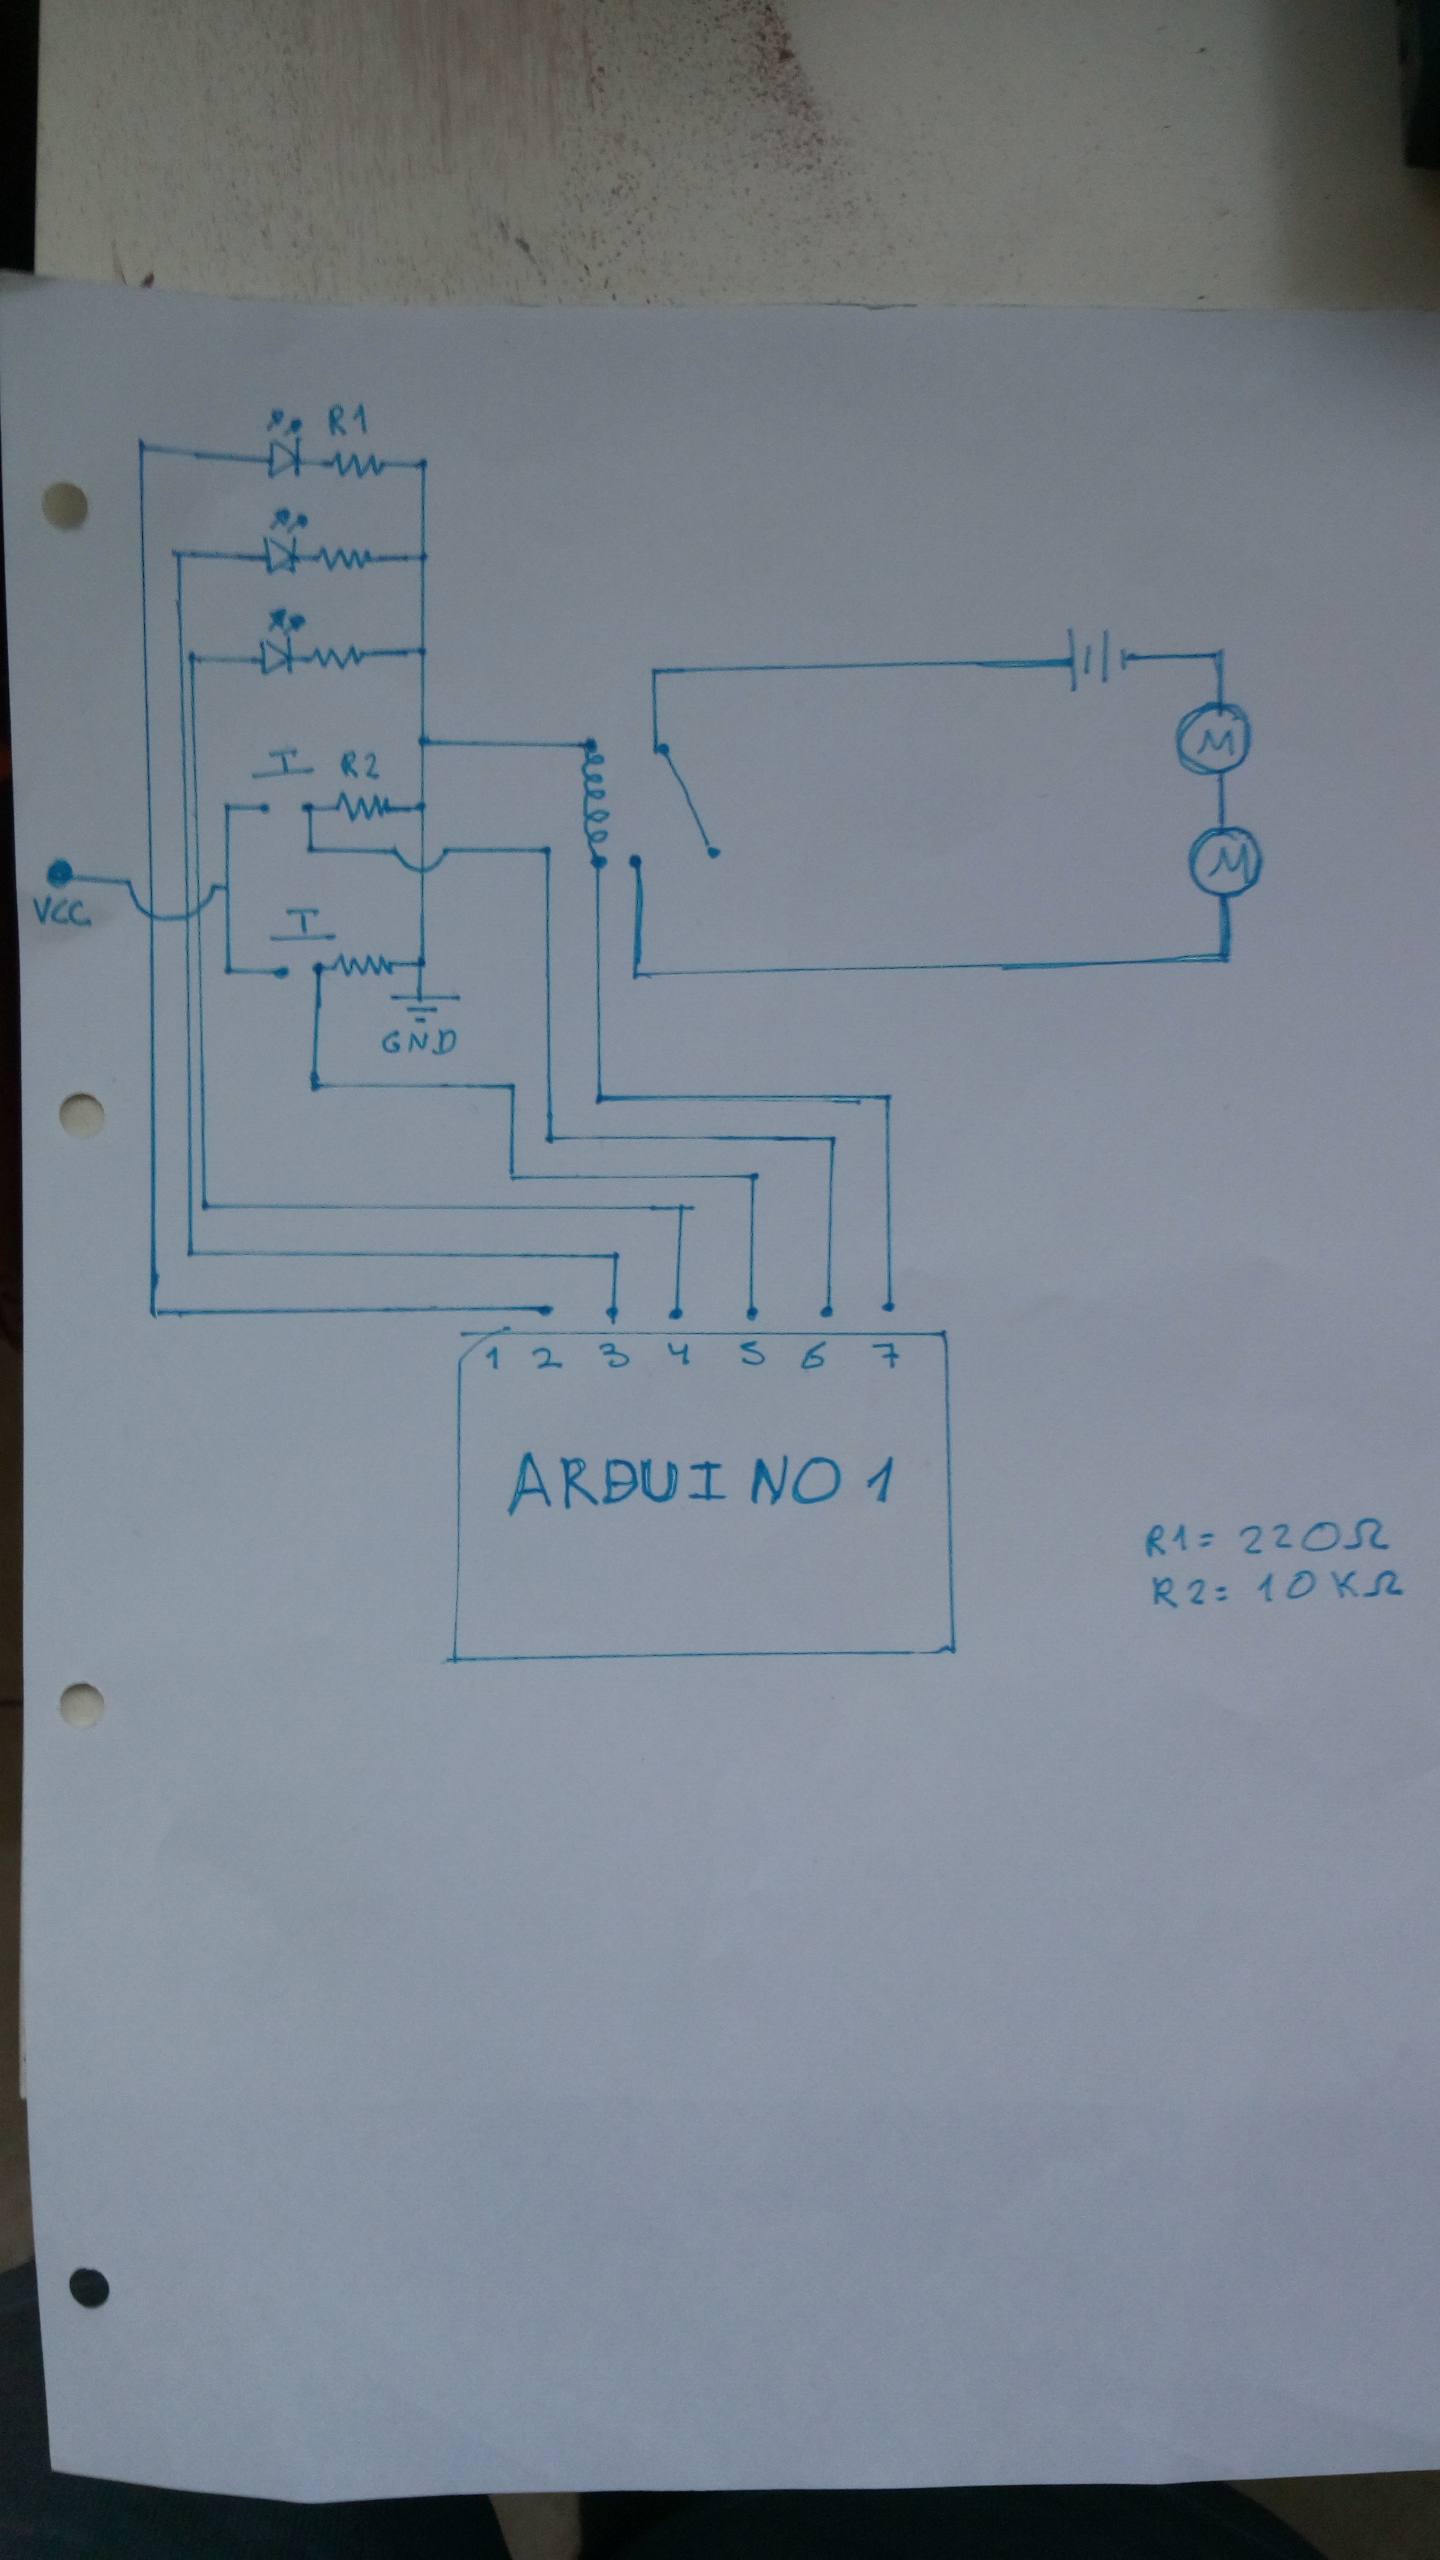 R1
R2
VCC
GND
M
M
1 2 3 4 5 6 7
ARDUINO 1
R1= 220Ω
R2= 10KΩ